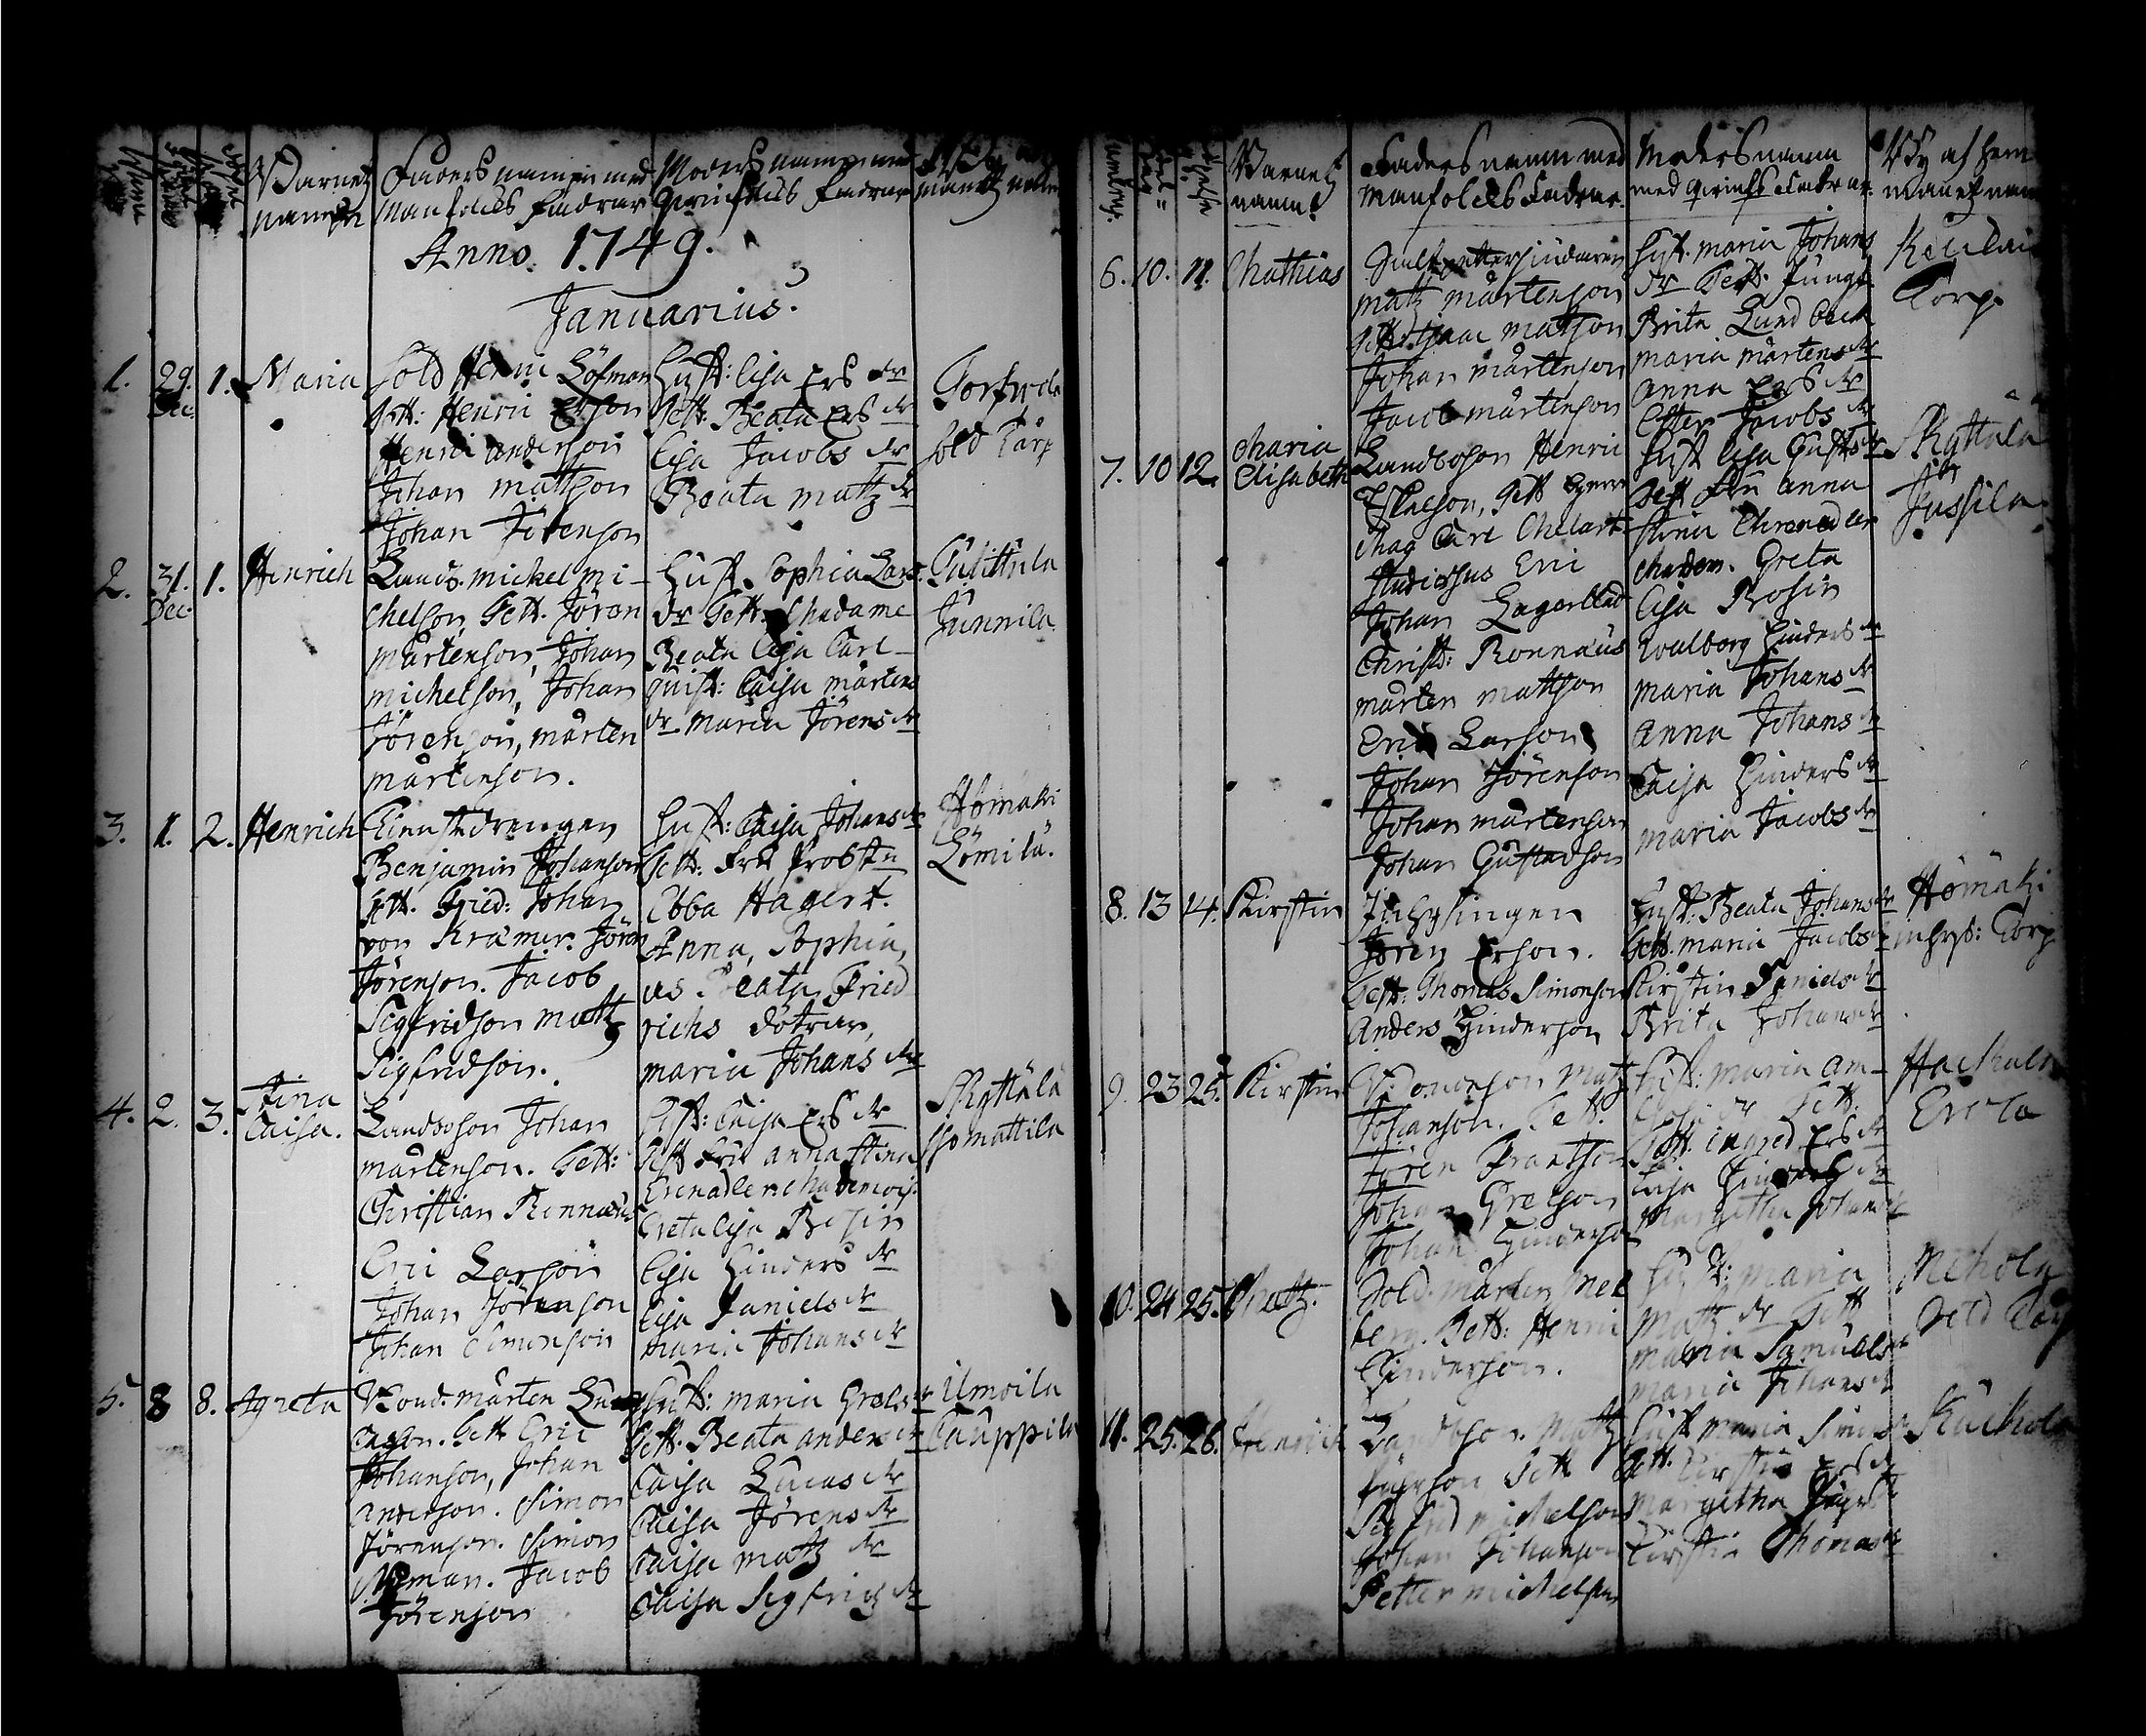 Barnetz
namn
Faders namn med
Manfolcks Faddrar
Moders namn med
Qvinfolcks Faddrar
manetz namn
Anno. 1749.
Januarius.
1. 29. Dec. 1. Maria
Sold Henric Löfman
Gett: Henric Erson
Henric anderson
Johan mattson
Johan Jörenson
Hust: Lisa Ers dr
Gett: Beata Ers dr
Lisa Jacobs dr
Beata matz dr
Sold Torp
2. 31. Dec. 1. Henrich
Landb. michel mi-
chelson, Gett. Jören
mårtenson, Johan
michelson, Johan
Jörenson, mårten
mårtenson.
Hust. Sophia Lars
dr Gett. Madame
Beata Lisa Carl-
quist: Caisa mårtens
dr maria Jörens dr
Junnila
3. 1. 2. Henrich
Tienstedrengen
Benjamin Johanson
Gett. Fried: Johan
von Kræmer. Jören
Jörenson. Jacob
Sigfridson matz
Sigfridson.
Hust: Caisa Johans dr
Gett: Fru Probstn
Ebba Hagert.
Anna, Sophia,
us Beata Fried
richs dötrar,
maria Johans dr
Homäki
Lömilä.
4. 2. 3. Stina
Caisa.
Landboson Johan
mårtenson. Gett:
Christian Rennæus
Eric Larson
Johan Jörenson
Johan Simonson
Hust: Caisa Ers dr
Gett Fru anna Stina
Greta Lisa Rosin
Lisa Hinders dr
Lisa Daniels dr
maria Johans dr
Skyttälä
Isomattila
5. 8 8. Agneta
Bond. mårten Lu-
cason. Gett Eric
Johanson, Johan
anderson. Simon
Jörenson. Simon
Nyman. Jacob
Jörenson
Hust: maria Grels dr
Gett. Beata anders dr
Caisa Lucas dr
Caisa Jörens dr
Caisa matz dr
Caisa Sigfridz dr
Ilmoila
Cauppila
Barnetz
namn
Faders namn med
manfolcks Faddrar.
Moders namn
med qvinfs Faddrar.
By och hem
manetz namn
6. 10. 11. Mathias
matz mårtenson
Gett. Isaac matson
Johan mårtenson
Jacob mårtenson
Hust. maria Johans
dr Gett. Jungf.
Brita Lundbeck
maria mårtens dr
anna Ers dr
Ester Jacobs dr
Torp.
7. 10 12. Maria
Elisabeth
Landboson Henric
Eskelson, Gett Herr
Mag Carl Melart
Studiosus Eric
Johan Lagerblad
Christ: Rennæus
mårten mattson
Eric Larson
Johan Jörenson
Johan mårtenson
Johan Gustadson
Hust Lisa Gustafs dr
Gett Fru anna
Stina Ehrenadler
Madem. Greta
Lisa Rosin
walborg Hinders dr
maria Johans dr
anna Johans dr
Caisa Hinders dr
maria Jacobs dr
Skyttälä
Jussila
8. 13 14. Kirstin
Inhysingen
Jören Erson.
Gett: Thomas Simonson
Anders Hinderson
Hust: Beata Johans dr
Gett. maria Jacobs dr
Kirstin Daniels dr
Brita Johans dr
Homäki
inhys: Torp
9. 23 25. Kirstin
Bondeson Matz
Johanson. Gett.
Jören Frantson
Johan Grelson
Johan Hinderson
Hust: maria am-
Gett. ingred Ers dr
Caisa Hinders dr
Margetha Johans dr
Erola
10. 24 25. Matz.
Sold. mårten Mel
berg. Gett: Henric
Hinderson.
Hust: maria
Matz dr Gett
maria Samuels dr
maria Johans dr
Sold Torp
11. 25. 26. Henrich
Landboson Matz
Gett
Sigfrid michelson
Johan Johanson
Petter michelson
Hust maria Simons dr
Gett. Kirstin Ers dr
Margetha
Kirstin Thomas dr